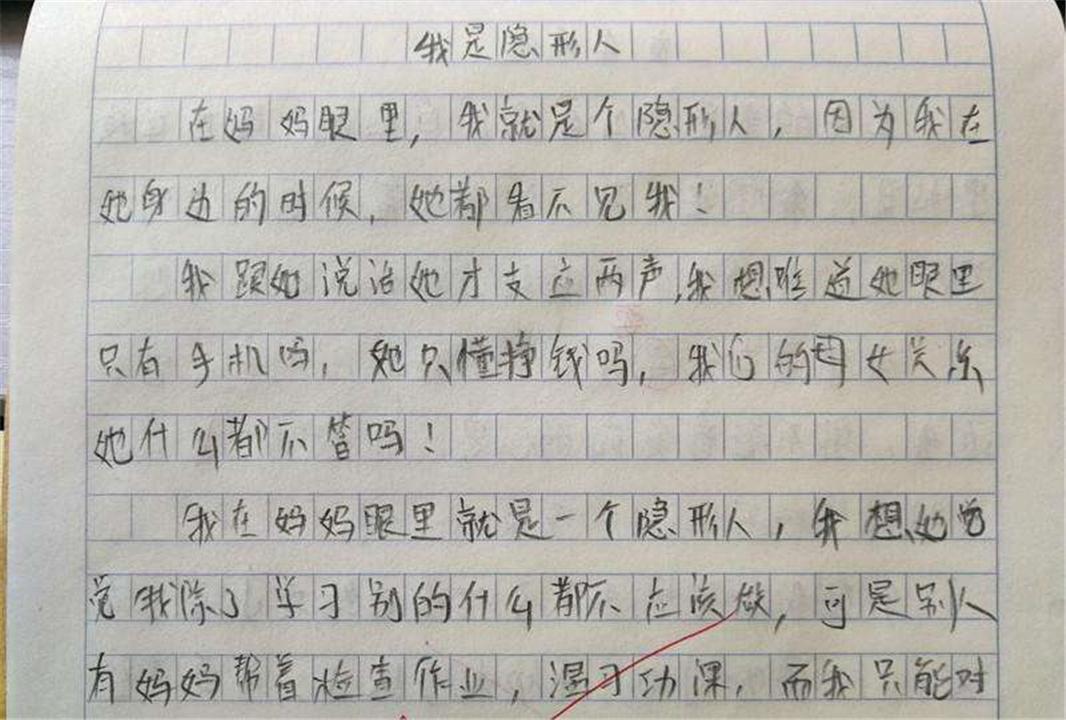 我是隐形人
在妈妈眼里，我就是个隐形人，因为我在
她身边的时候，她都看不见我！
我跟她说话她才支应两声，我想难道她眼里
只有手机吗，她只懂挣钱吗，我们的母女关系
她什么都不管吗！
我在妈妈眼里就是一个隐形人，我想她也
觉我除了学习别的什么都不应该做，可是别人
有妈妈帮着检查作业，温习功课，而我只能对